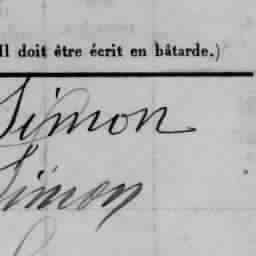 Il doit être écrit en bâtarde.)
Simon
Simon